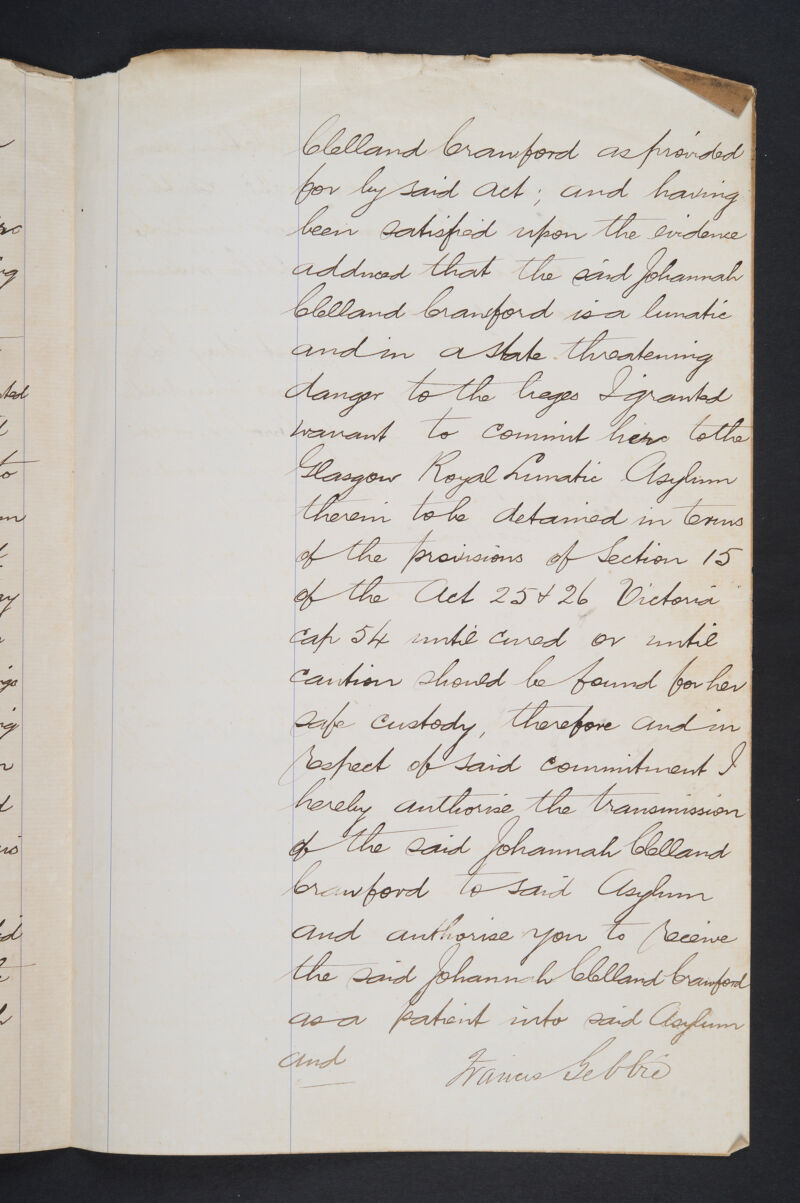 Clelland Crawford as provided
for by said Act; and having
been satisfied upon the evidence
adduced that the said Johannah
Clelland Crawford is a lunatic
and in a state threatening
danger to the lieges I granted
warrant to commit her to the
Glasgow Royal Lunatic Asylum
therein to be detained in terms
of the provisions of Section 15
of the Act 25 & 26 Victoria
cap 54 until cured or until
caution should be found for her
safe custody, therefore and in
respect of said commitment I
hereby authorise the transmission
of the said Johannah Clelland
Crawford to said Asylum
and authorise you to receive
the said Johannah Clelland Crawford
as a patient into said Asylum
and
Francis Gebbie